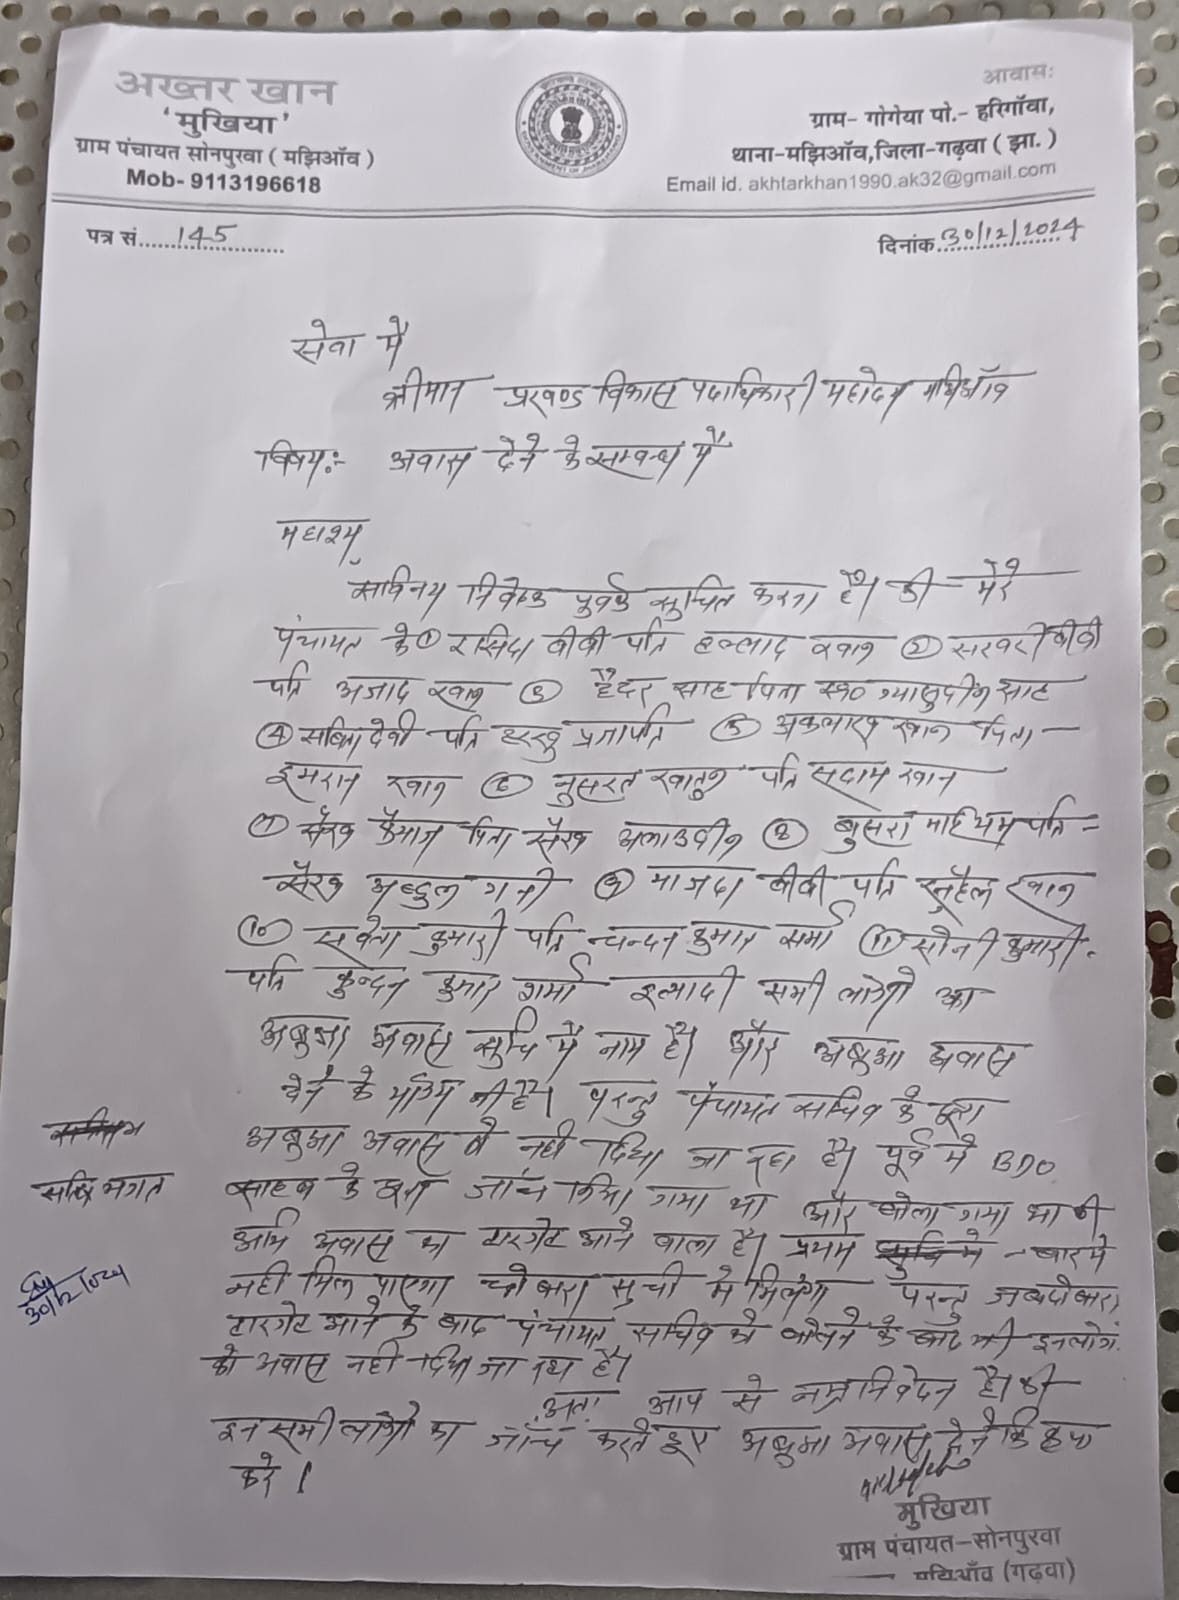 अख्तर खान
'मुखिया'
ग्राम पंचायत सोनपुरवा ( मझिऑंव )
Mob- 9113196618
आवासः
ग्राम- गोगेया पो.- हरिगॉंवा,
थाना-मझिऑंव,जिला-गढ़वा ( झा. )
Email id. akhtarkhan1990.ak32@gmail.com
पत्र सं. 145
दिनांक 30/12/2024
सेवा में
श्रीमान प्रखण्ड विकास पदाधिकारी महोदय मझिऑंव
विषय:- अवास देने के सम्बन्ध में
महाश्य
सविनय निवेदन पुर्वक सुचित करना है। की मेरे
पंचायत के ① रसिदा बीबी पति खान ② सरवरी बीबी
पति अजाद खान ③ हैदर साह पिता स्व० ग्यासुदीन साह
④ सबिता देवी पति हरखु प्रजापति ⑤ खान पिता-
इमरान खान ⑥ नुसरत खातुन पति सदाम खान
⑦ सैख पिता सैख अलाउदीन ⑧ बुसरा पति-
सैख अब्दुल गनी ⑨ माजदा बीबी पति खान
⑩ सवेता कुमारी पति चन्दन कुमार सर्मा ⑪ सोनी कुमारी.
पति कुन्दन कुमार शर्मा इत्यादी सभी लोगो का
अबुआ अवास सुचि में नाम है। और अबुआ अवास
देने के योग्य भी है। परन्तु पंचायत सचिव के द्वारा
अबुआ अवास नही दिया जा रहा है। पूर्व में BDO
साहब के द्वारा जांच किया गया था और बोला गया था की
अभि अवास का टारगेट आने वाला है। प्रथम बार मे
नही मिल पाएगा दोबारा सुची मे मिलेगा परन्तु जब दोबारा
टारगेट आने के बाद पंचायत सचिव को बोलने के बाद भी इनलोगो
को अवास नही दिया जा रहा है।
अतः आप से नम्र निवेदन है। की
इन सभी लोगो का जाँच करते हुए अबुआ अवास देने कि कृपा
करे।
भगत
30/12/2024
मुखिया
ग्राम पंचायत-सोनपुरवा
मझिऑंव (गढ़वा)